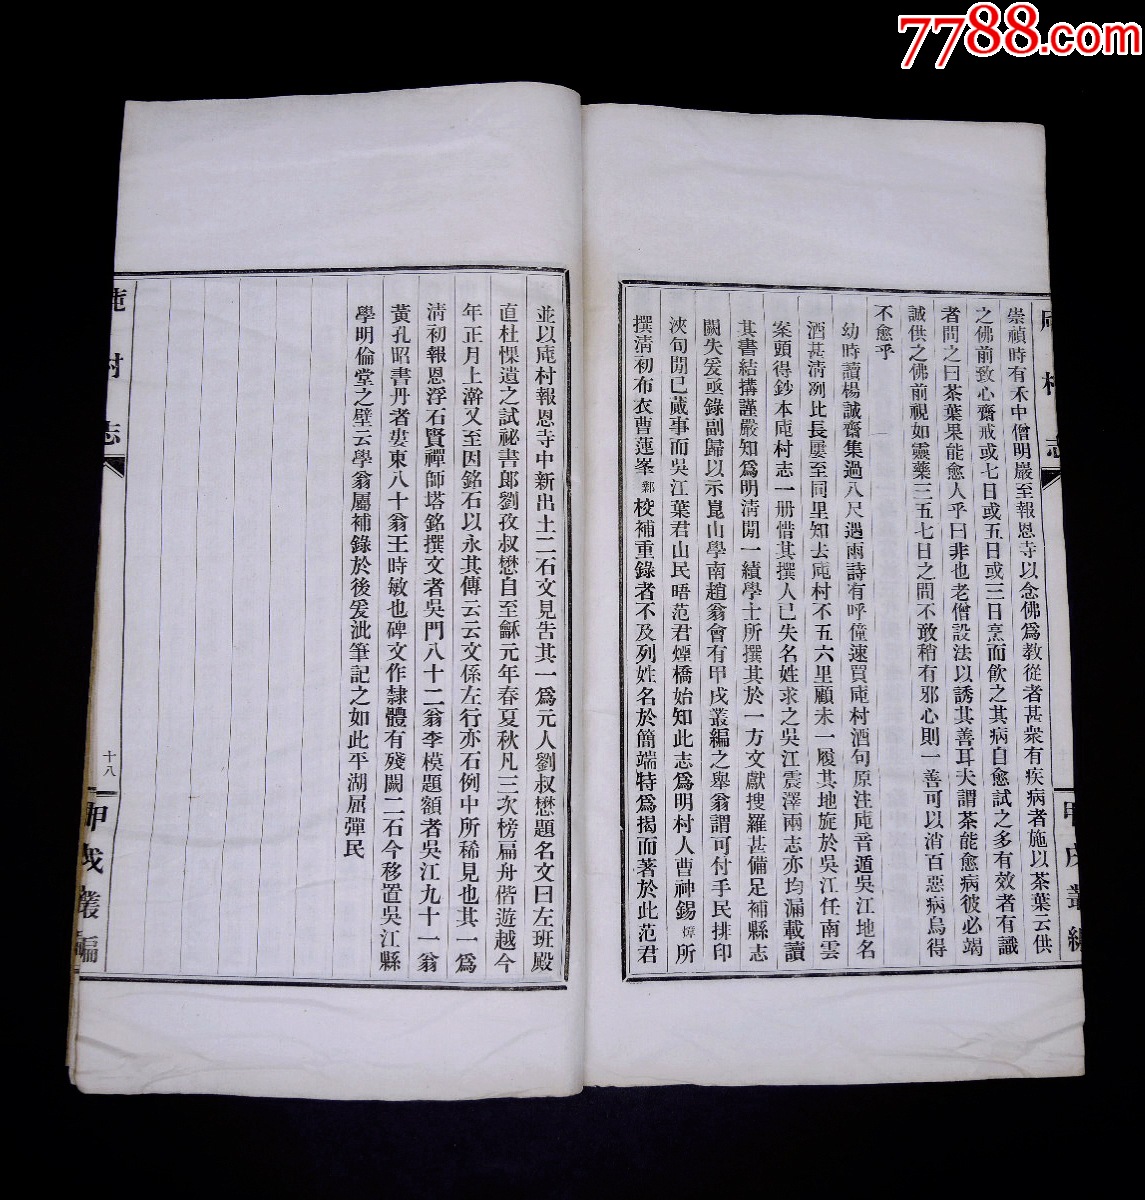 7788.com
崇禎時有禾中僧明嚴至報恩寺以念佛爲教從者甚衆有疾病者施以茶葉云供
之佛前致心齋戒或七日或五日或三日烹而飲之其病自愈試之多有效者有識
者問之曰茶葉果能愈人乎曰非也老僧設法以誘其善耳夫謂茶能愈病彼必竭
誠供之佛前視如靈藥三五七日之間不敢稍有邪心則一善可以消百惡病烏得
不愈乎
幼時讀楊誠齋集過八尺遇雨詩有呼僮速買庉村酒句原注庉音遁吳江地名
酒甚清冽比長屢至同里知去庉村不五六里顧未一履其地旋於吳江任南雲
案頭得鈔本庉村志一册惜其撰人已失名姓求之吳江震澤兩志亦均漏載讀
其書結搆謹嚴知爲明清閒一績學士所撰其於一方文獻搜羅甚備足補縣志
闕失爰亟錄副歸以示崑山學南趙翁會有甲戌叢編之舉翁謂可付手民排印
浹旬閒已蕆事而吳江葉君山民晤范君煙橋始知此志爲明村人曹神錫 所
撰清初布衣曹蓮峯 校補重錄者不及列姓名於簡端特爲揭而著於此范君
庉村志
甲戌叢編
並以庉村報恩寺中新出土二石文見告其一爲元人劉叔懋題名文曰左班殿
直杜惈遺之試祕書郎劉孜叔懋自至龢元年春夏秋凡三次榜扁舟偕遊越今
年正月上澣又至因銘石以永其傳云云文係左行亦石例中所稀見也其一爲
清初報恩浮石賢禪師塔銘撰文者吳門八十二翁李模題額者吳江九十一翁
黃孔昭書丹者婁東八十翁王時敏也碑文作隸體有殘闕二石今移置吳江縣
學明倫堂之壁云學翁屬補錄於後爰泚筆記之如此平湖屈彈民
庉村志
十八
甲戌叢編